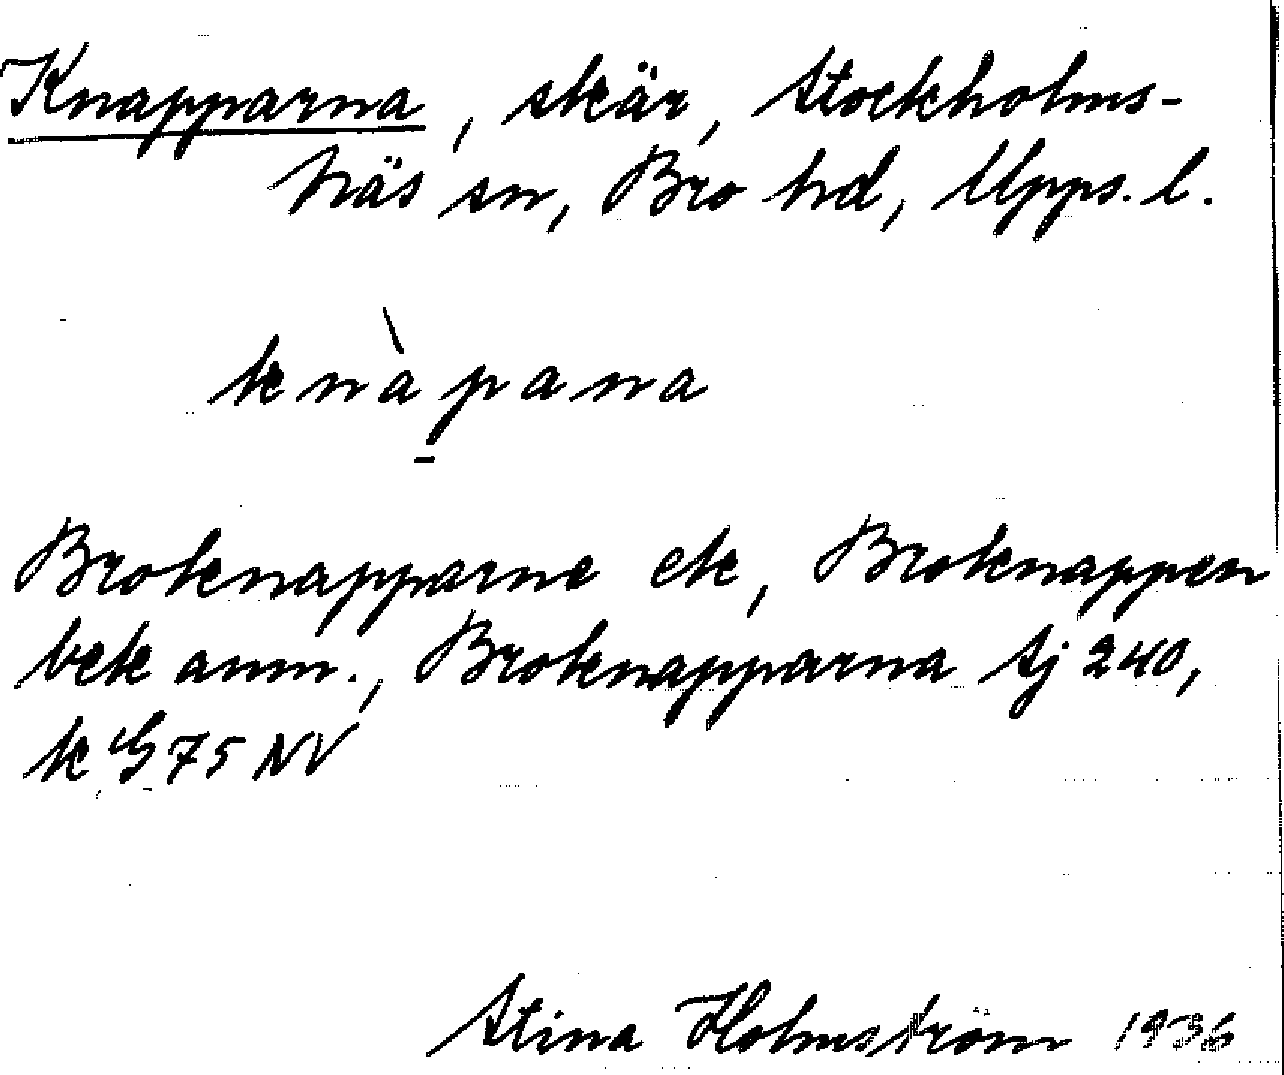 Knapparna, skär, Stockholms-
Näs sn, Bro hd, Upps. l.
knàpana
Broknapparne ek, Broknappen
bek anm., Broknapparna sj 240,
k G 75 NV
Stina Holmström 1936